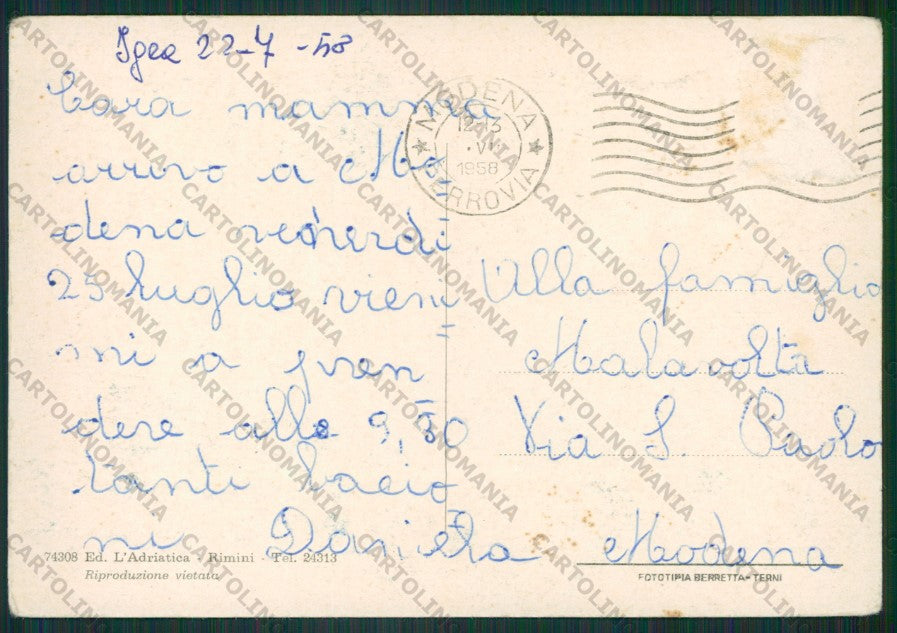 Igea 22-7-58
Cara mamma
arrivo a Mo=
dena venerdi
25 luglio vieni=
mi a pren
dere alle 9,50
tanti bacio
ni Daniela
MODENA
FERROVIA
1958
Alla famiglia
Malavolta
Via S. Paolo
Modena
74308 Ed. L'Adriatica - Rimini - Tel. 24313
Riproduzione vietata
FOTOTIPIA BERRETTA - TERNI
CARTOLINOMANIA